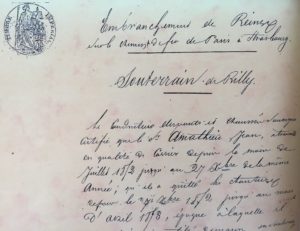 Embranchement de Reims
sur le chemin de fer de Paris à Strasbourg
Souterrain de Rilly
Le Conducteur des ponts et chaussées soussigné
certifie que le Sr Amathieu Jean, 
en qualité de depuis le mois de
juillet 1852 jusqu'au 27 8bre de la même
Année; qu'il a quitté les chantiers
depuis le 1852 jusqu'au mois
D'avril 1853, époque à laquelle il